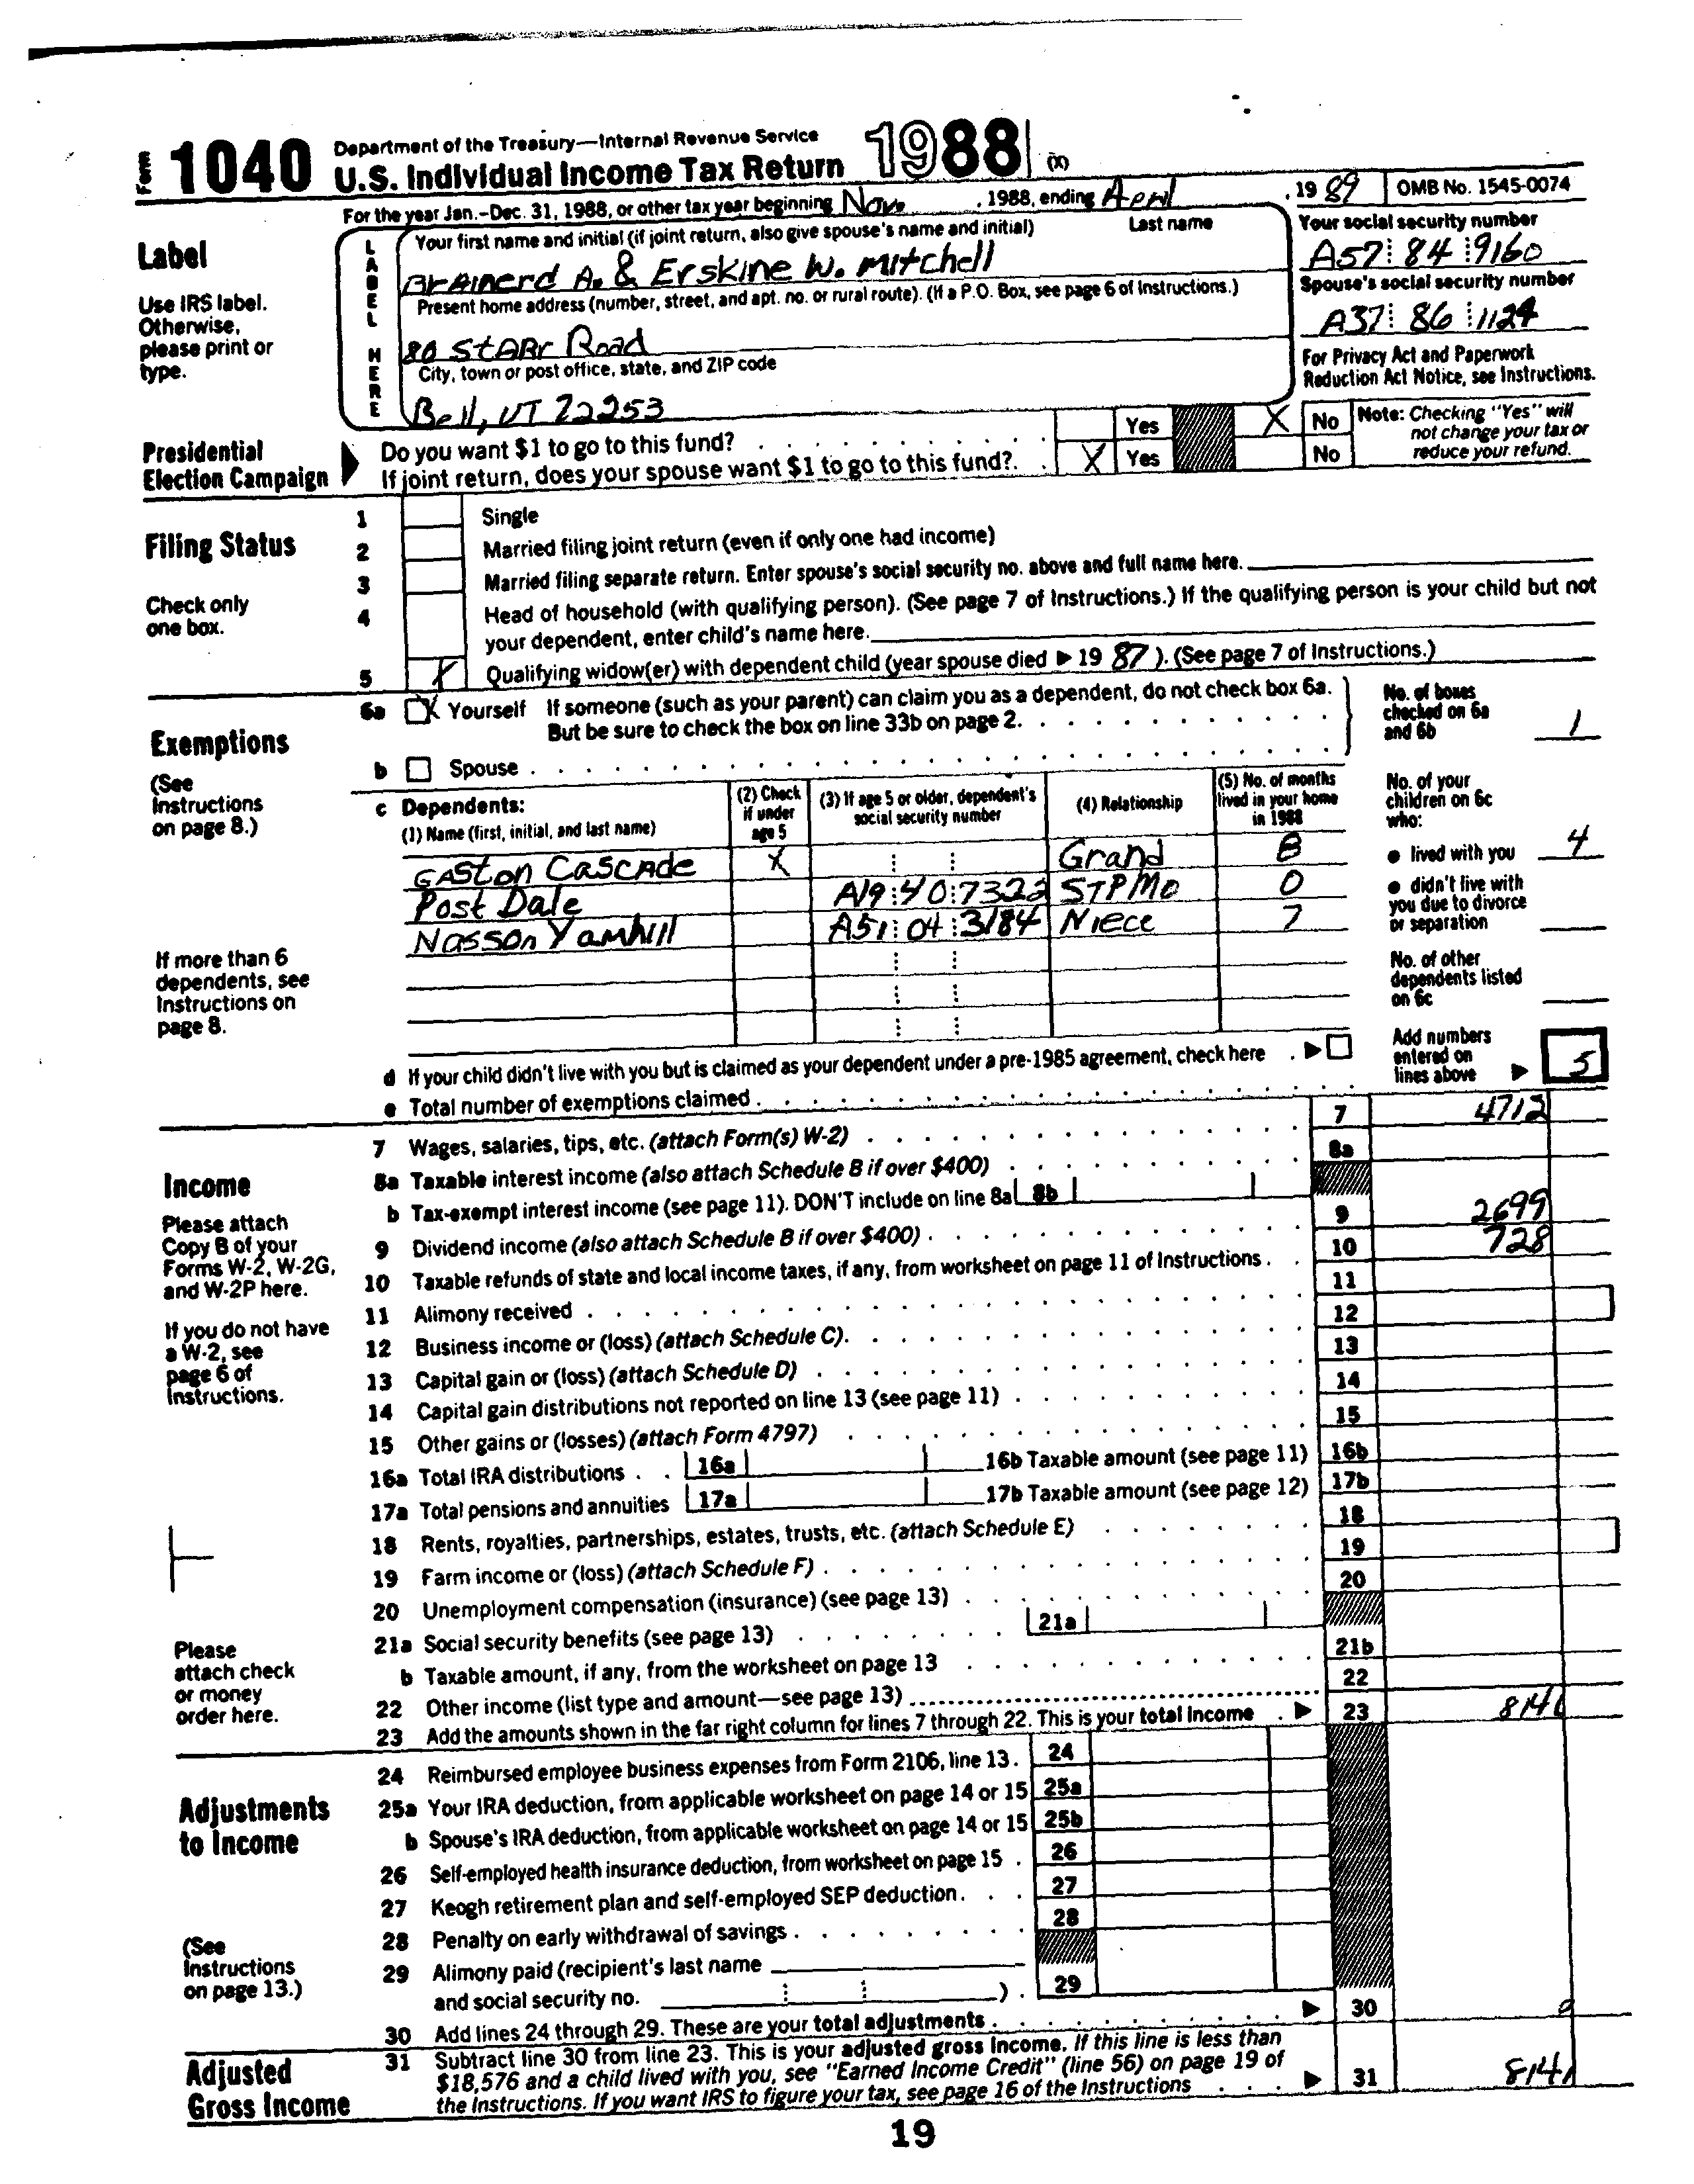 Form 1040 Department of the Treasury—Internal Revenue Service
U.S. Individual Income Tax Return 1988 (X)
For the year Jan.-Dec. 31, 1988, or other tax year beginning Nov , 1988, ending April , 19 89 OMB No. 1545-0074
Label
Use IRS label. Otherwise, please print or type.
LABEL HERE
Your first name and initial (if joint return, also give spouse's name and initial) Last name
Brainerd A. & Erskine W. Mitchell
Your social security number
A57 84 9160
Present home address (number, street, and apt. no. or rural route). (If a P.O. Box, see page 6 of Instructions.)
80 Starr Road
Spouse's social security number
A37 86 1124
City, town or post office, state, and ZIP code
Bell, VT 22253
For Privacy Act and Paperwork Reduction Act Notice, see Instructions.
Presidential Election Campaign
Do you want $1 to go to this fund? Yes X No
If joint return, does your spouse want $1 to go to this fund? X Yes No
Note: Checking "Yes" will not change your tax or reduce your refund.
Filing Status
Check only one box.
1 Single
2 Married filing joint return (even if only one had income)
3 Married filing separate return. Enter spouse's social security no. above and full name here.
4 Head of household (with qualifying person). (See page 7 of Instructions.) If the qualifying person is your child but not
your dependent, enter child's name here.
5 X Qualifying widow(er) with dependent child (year spouse died ▶ 19 87 ). (See page 7 of Instructions.)
Exemptions
(See Instructions on page 8.)
6a X Yourself If someone (such as your parent) can claim you as a dependent, do not check box 6a.
But be sure to check the box on line 33b on page 2.
b Spouse
No. of boxes checked on 6a and 6b 1
c Dependents:
(1) Name (first, initial, and last name) (2) Check if under age 5 (3) If age 5 or older, dependent's social security number (4) Relationship (5) No. of months lived in your home in 1988
Gaston Cascade X Grand 8
Post Dale A19 40 7322 STPMO 0
Nasson Yamhill A51 04 3184 Niece 7
No. of your children on 6c who:
● lived with you 4
● didn't live with you due to divorce or separation
No. of other dependents listed on 6c
If more than 6 dependents, see Instructions on page 8.
d If your child didn't live with you but is claimed as your dependent under a pre-1985 agreement, check here ▶
e Total number of exemptions claimed
Add numbers entered on lines above ▶ 5
Income
Please attach Copy B of your Forms W-2, W-2G, and W-2P here.
If you do not have a W-2, see page 6 of Instructions.
Please attach check or money order here.
7 Wages, salaries, tips, etc. (attach Form(s) W-2) 7 4712
8a Taxable interest income (also attach Schedule B if over $400) 8a
b Tax-exempt interest income (see page 11). DON'T include on line 8a 8b
9 Dividend income (also attach Schedule B if over $400) 9 2699
10 Taxable refunds of state and local income taxes, if any, from worksheet on page 11 of Instructions 10 728
11 Alimony received 11
12 Business income or (loss) (attach Schedule C) 12
13 Capital gain or (loss) (attach Schedule D) 13
14 Capital gain distributions not reported on line 13 (see page 11) 14
15 Other gains or (losses) (attach Form 4797) 15
16a Total IRA distributions 16a 16b Taxable amount (see page 11) 16b
17a Total pensions and annuities 17a 17b Taxable amount (see page 12) 17b
18 Rents, royalties, partnerships, estates, trusts, etc. (attach Schedule E) 18
19 Farm income or (loss) (attach Schedule F) 19
20 Unemployment compensation (insurance) (see page 13) 20
21a Social security benefits (see page 13) 21a
b Taxable amount, if any, from the worksheet on page 13 21b
22 Other income (list type and amount—see page 13) 22
23 Add the amounts shown in the far right column for lines 7 through 22. This is your total income ▶ 23 814
Adjustments to Income
(See Instructions on page 13.)
24 Reimbursed employee business expenses from Form 2106, line 13. 24
25a Your IRA deduction, from applicable worksheet on page 14 or 15 25a
b Spouse's IRA deduction, from applicable worksheet on page 14 or 15 25b
26 Self-employed health insurance deduction, from worksheet on page 15 26
27 Keogh retirement plan and self-employed SEP deduction 27
28 Penalty on early withdrawal of savings 28
29 Alimony paid (recipient's last name
and social security no. ) 29
30 Add lines 24 through 29. These are your total adjustments ▶ 30 0
Adjusted Gross Income
31 Subtract line 30 from line 23. This is your adjusted gross income. If this line is less than
$18,576 and a child lived with you, see "Earned Income Credit" (line 56) on page 19 of
the Instructions. If you want IRS to figure your tax, see page 16 of the Instructions ▶ 31 8141
19